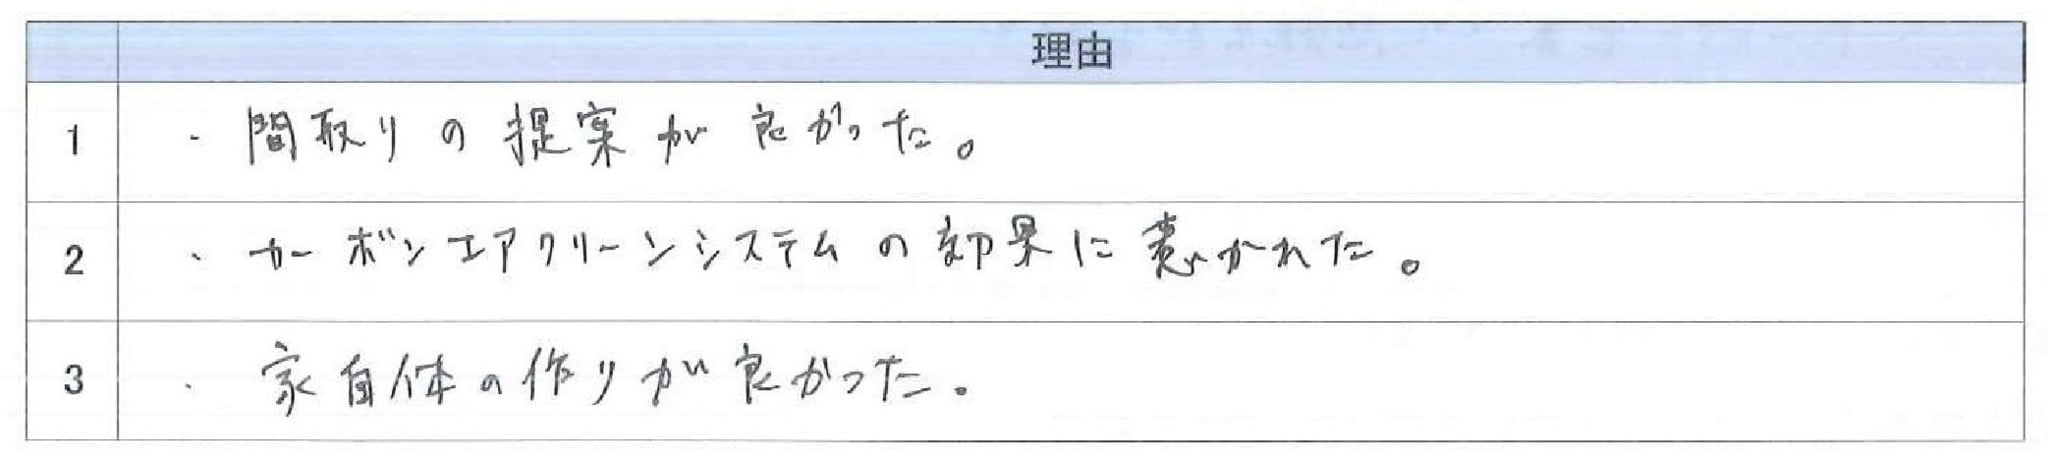 理由
1 ・間取りの提案が良かった。
2 ・カーボンエアクリーンシステムの効果に惹かれた。
3 ・家自体の作りが良かった。